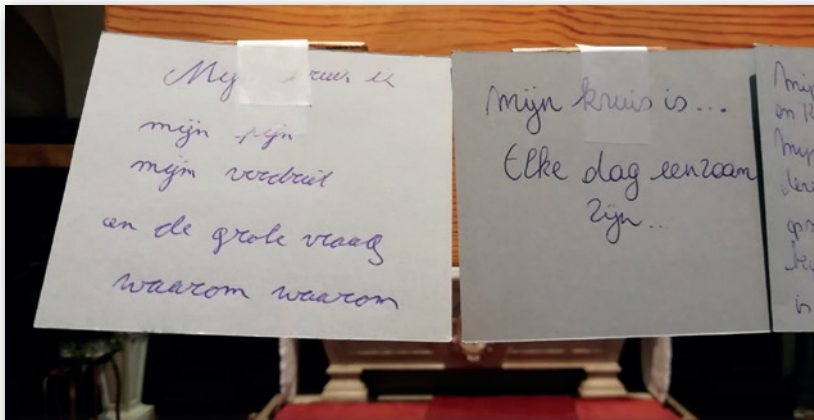 Mijn kruis is
mijn pijn
mijn verdriet
en de grote vraag
waarom waarom
mijn kruis is...
Elke dag eenzaam
zijn...